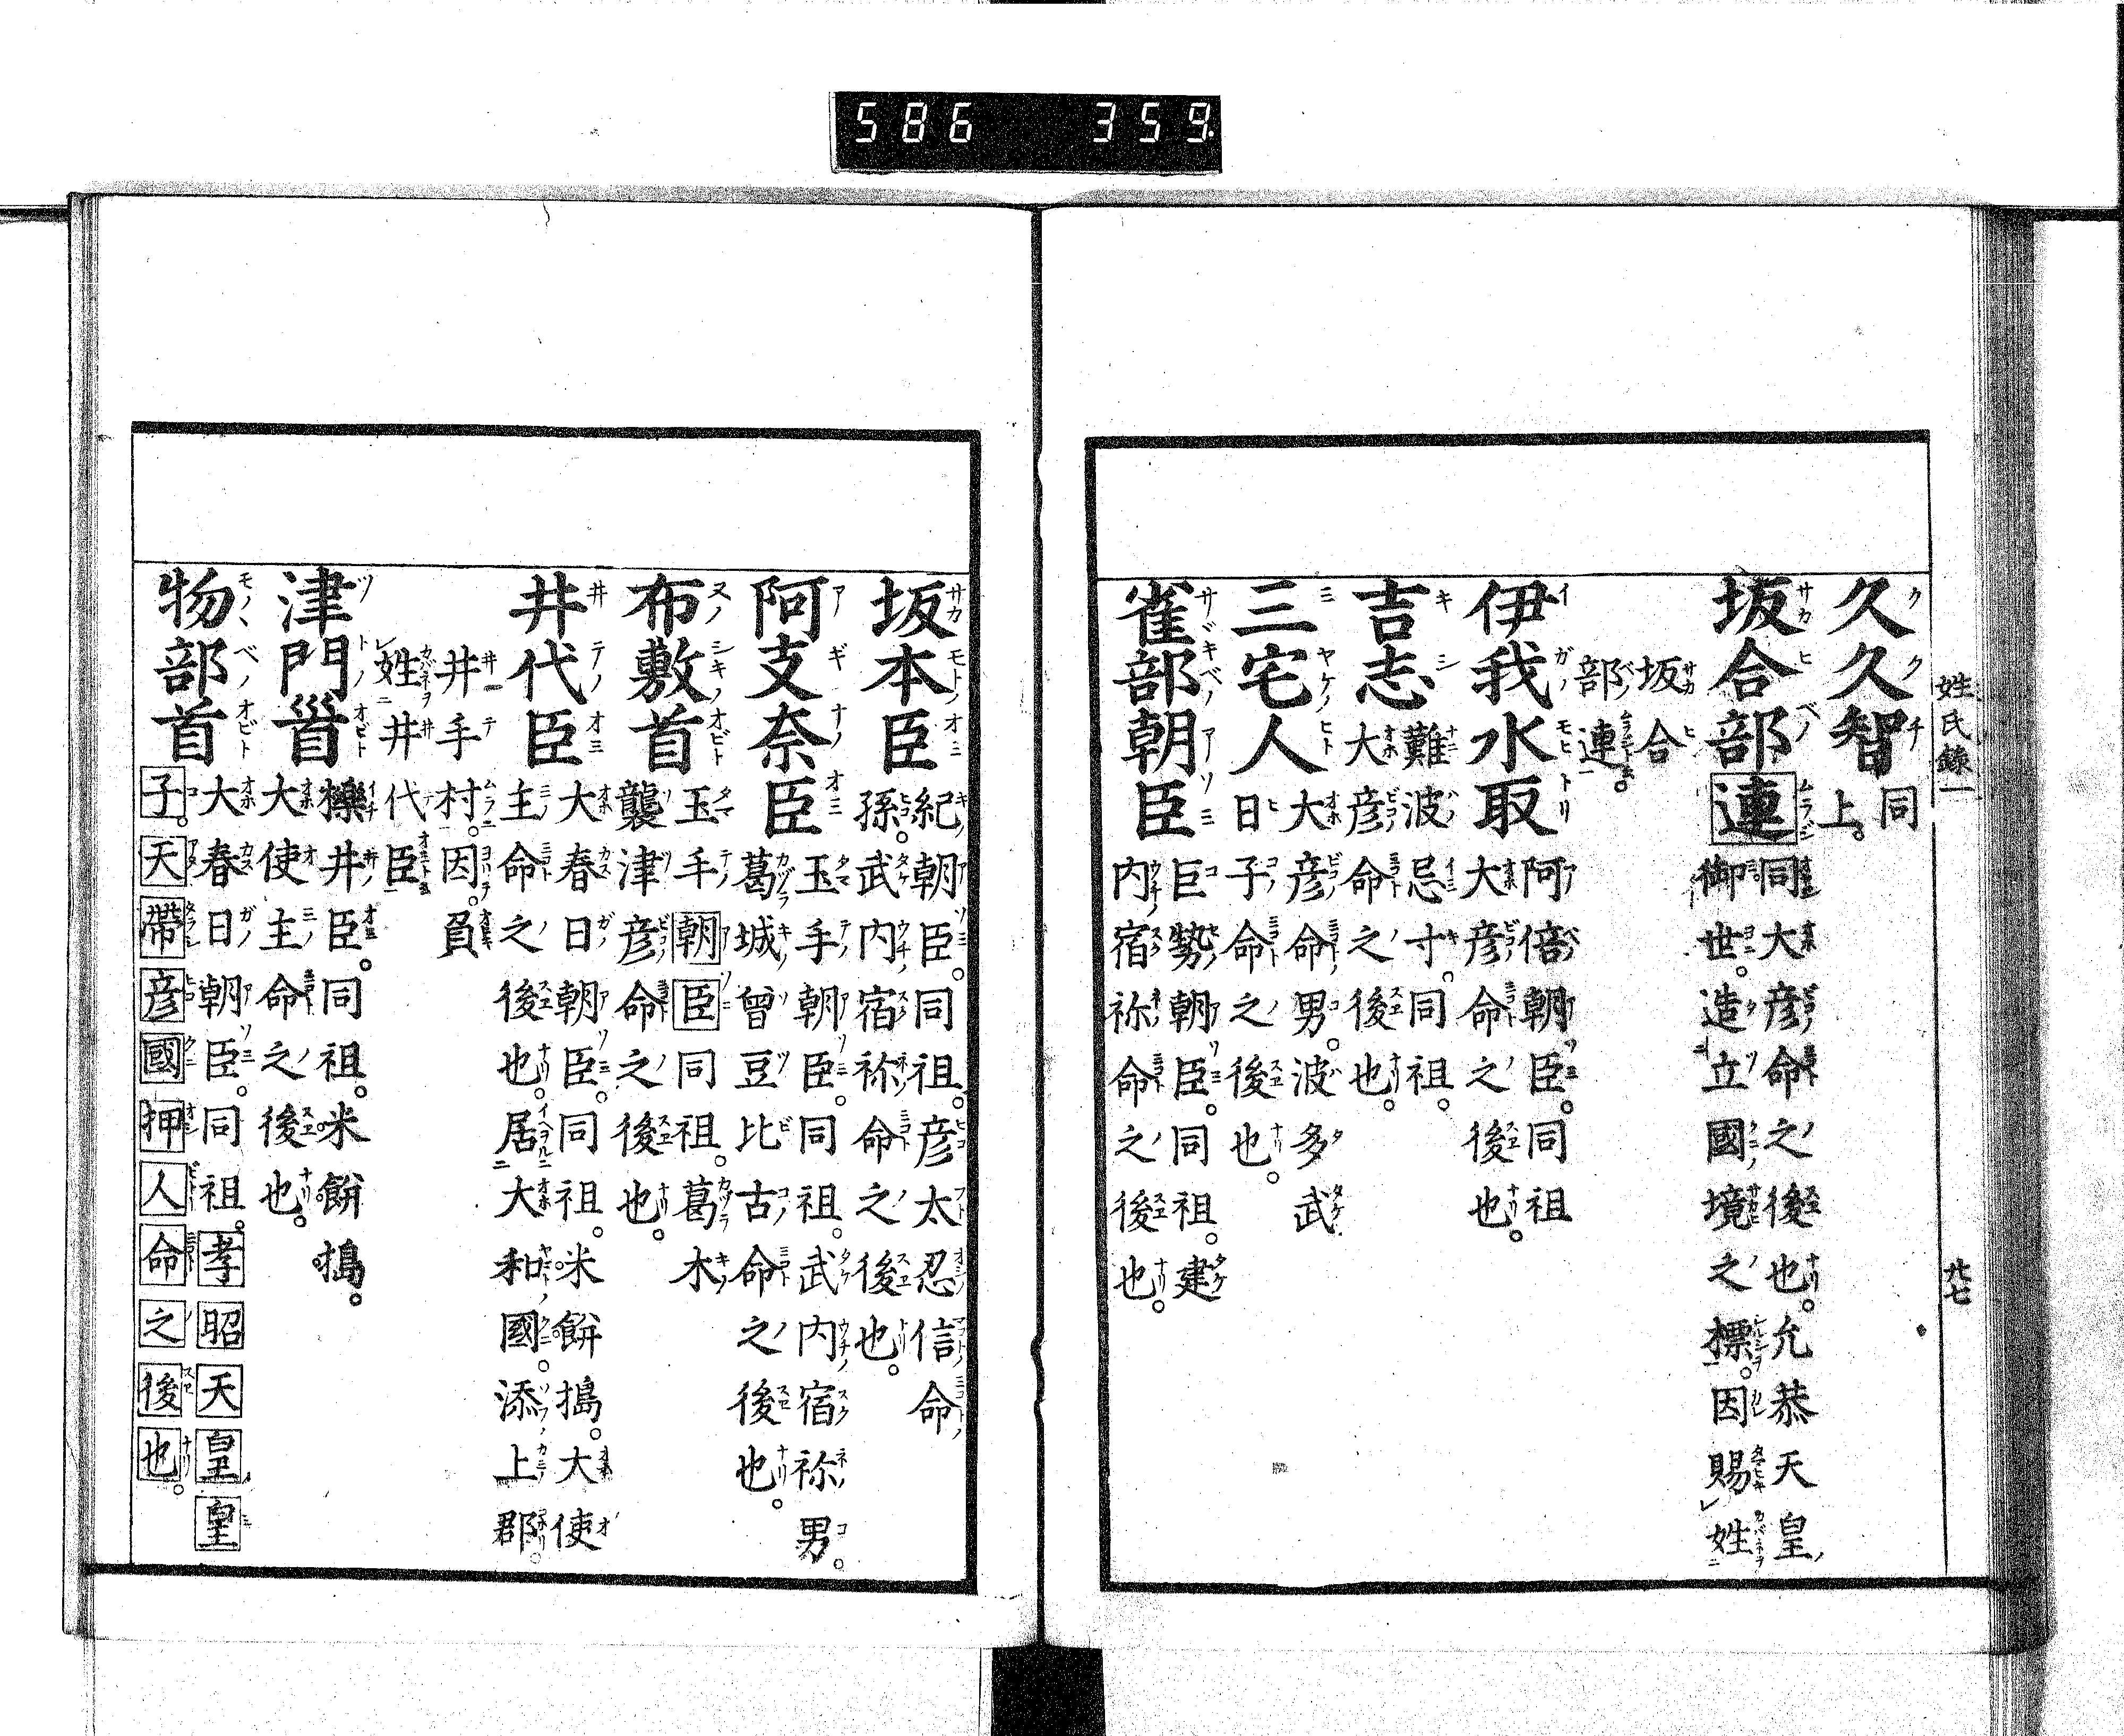 586 359
姓氏録一
廿七
久久智 同
上。
坂合部連 同大彦命之後也。允恭天皇
御世。造立國境之標。因賜姓
坂合
部連。
伊我水取 阿倍朝臣。同祖
大彦命之後也。
吉志 難波忌寸。同祖。
大彦命之後也。
三宅人 大彦命男。波多武
日子命之後也。
雀部朝臣 巨勢朝臣。同祖。建
内宿祢命之後也。
坂本臣 紀朝臣。同祖。彦太忍信命
孫。武内宿祢命之後也。
阿支奈臣 玉手朝臣。同祖。武内宿祢男。
葛城曾豆比古命之後也。
布敷首 玉手朝臣同祖。葛木
襲津彦命之後也。
井代臣 大春日朝臣。同祖。米餅搗。大使
主命之後也。居大和國。添上郡。
井手村。因。負
姓井代臣
津門首 櫟井臣。同祖。米餅搗。
大使主命之後也。
物部首 大春日朝臣。同祖。孝昭天皇皇
子。天帶彦國押人命之後也。